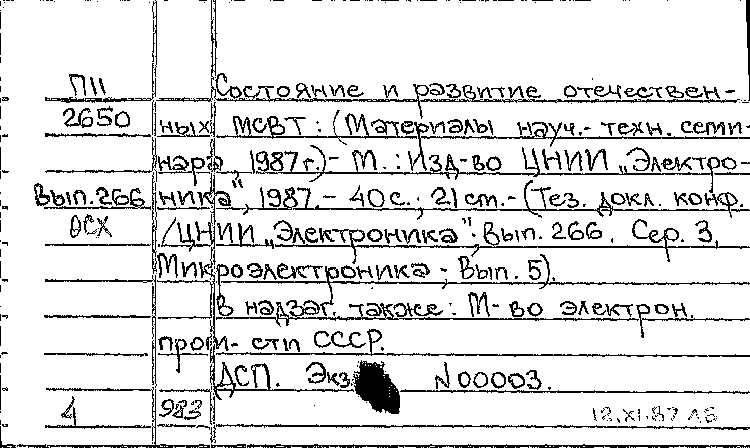 П11 Состояние и развитие отечествен-
2650 ных МСВТ: (Материалы науч.- техн. семи-
нара, 1987г.)- М.: Изд-во ЦНИИ „Электро-
Вып. 266 ника", 1987.- 40с.; 21 ст.- (Тез. докл. конф.
ОСХ /ЦНИИ „Электроника"; Вып. 266. Сер. 3,
Микроэлектроника; Вып. 5).
В надзаг. также: М-во электрон.
пром-сти СССР.
ДСП. Экз. N 00003.
4 983 12.XI.87